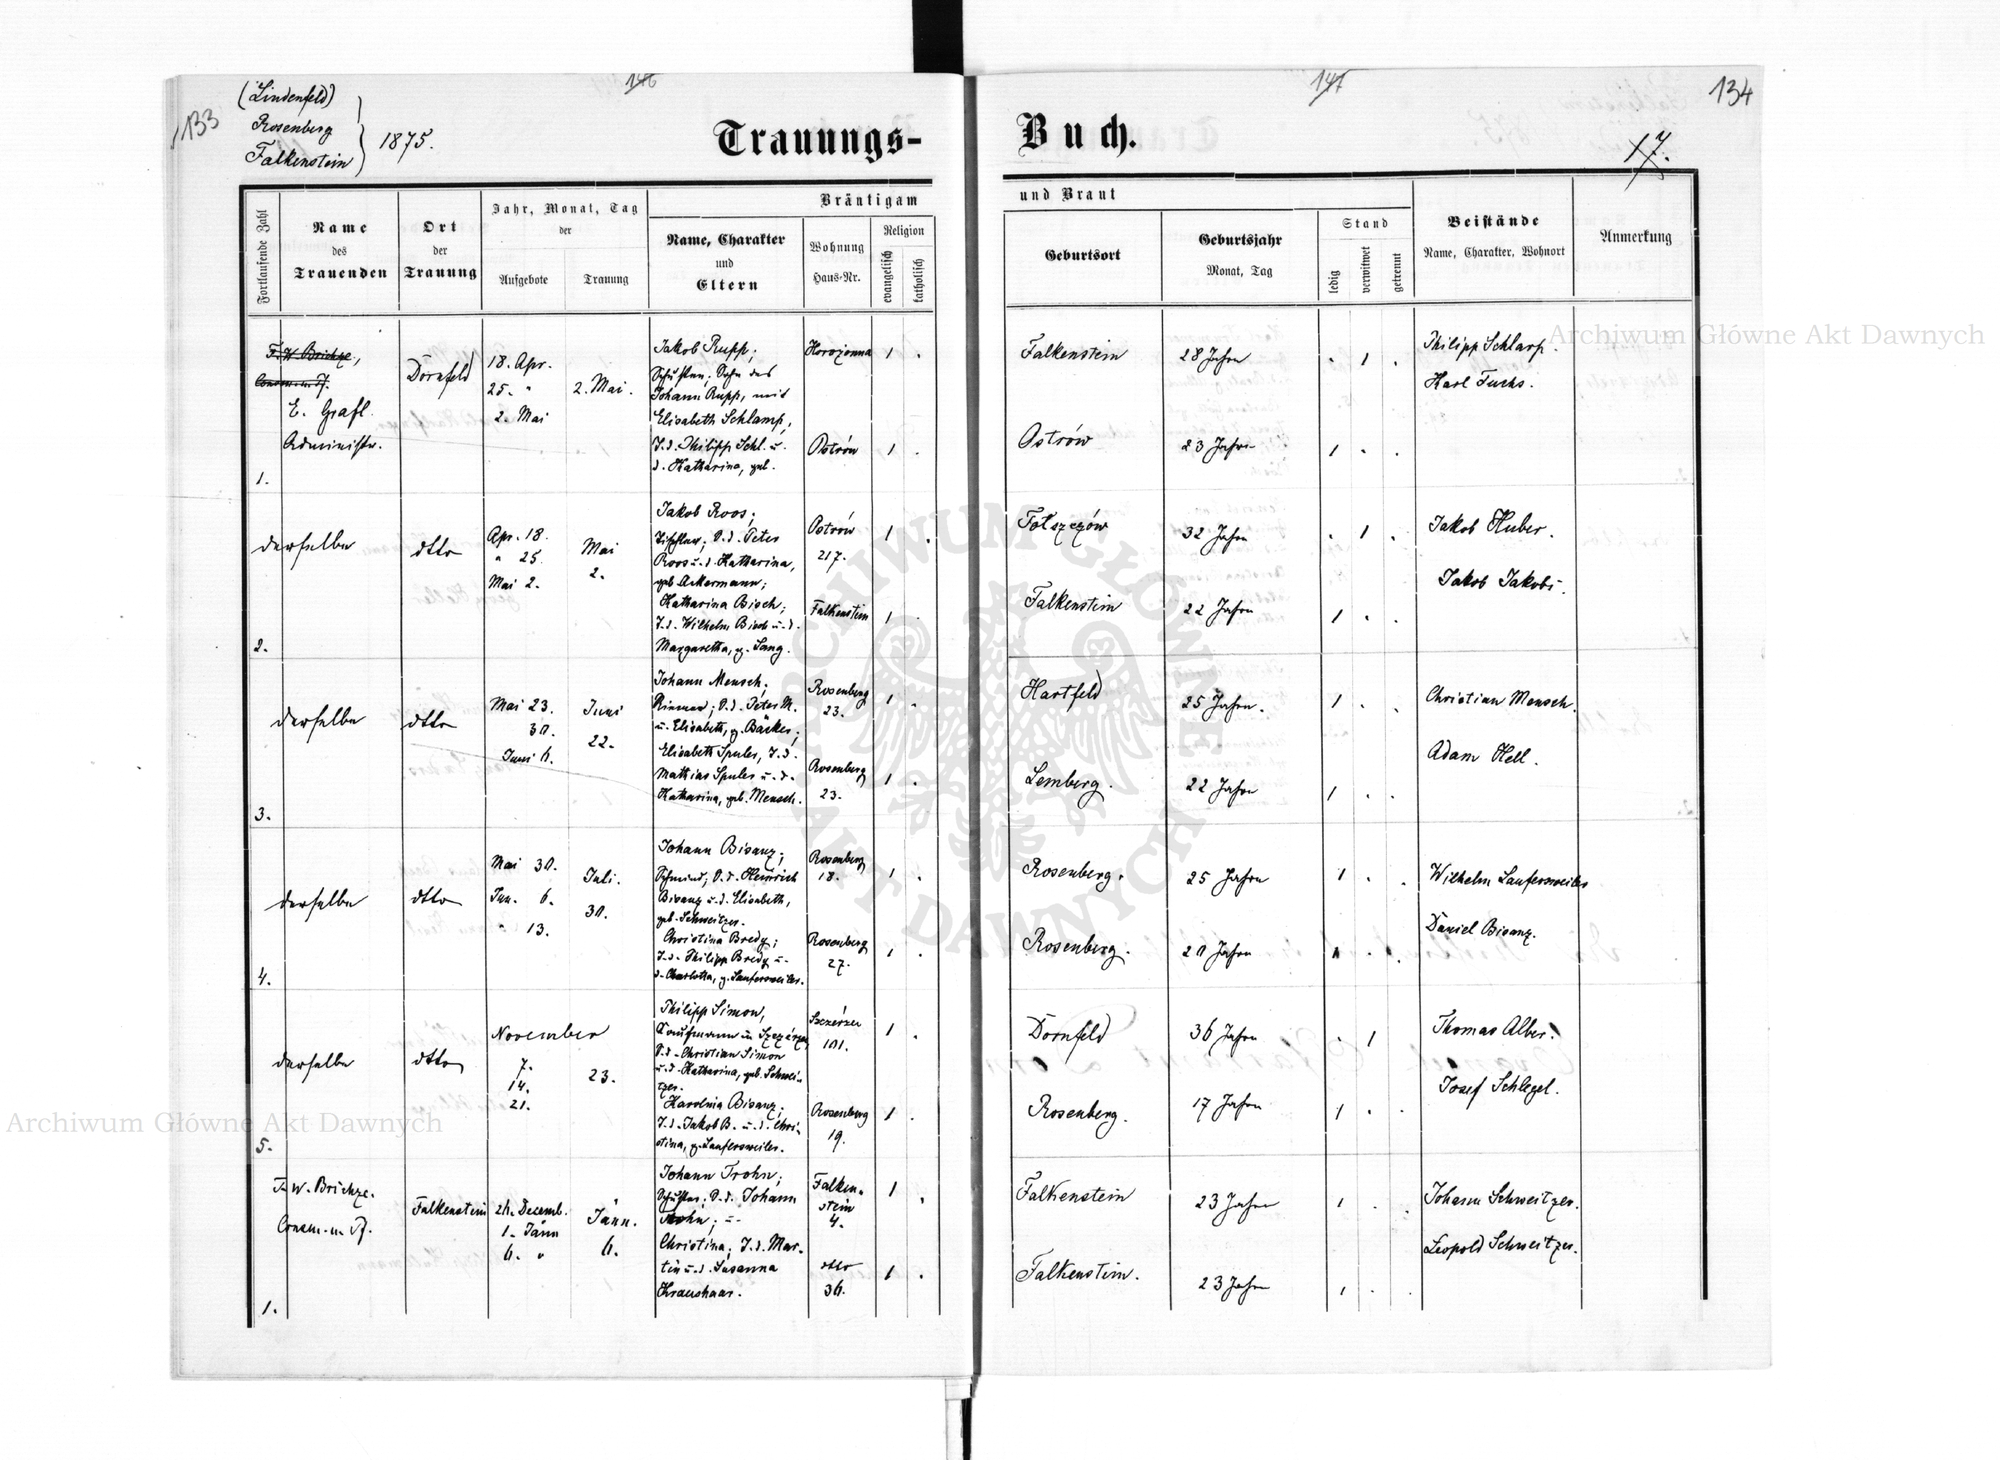 133
(Lindenfeld)
Rosenberg
Falkenstein
1875.
146
Trauungs-
Buch.
147
134
17.
Fortlaufende Zahl
Name
des
Trauenden
Ort
der
Trauung
Jahr, Monat, Tag
der
Aufgebote
Trauung
Bräutigam
Name, Charakter
und
Eltern
Wohnung
Haus-Nr.
Religion
evangelisch
katholisch
und Braut
Geburtsort
Geburtsjahr
Monat, Tag
Stand
ledig
verwitwet
getrennt
Beistände
Name, Charakter, Wohnort
Anmerkung
1.
E. Grafl.
Administr.
Dornfeld
18. Apr.
25. "
2. Mai
2. Mai.
Jakob Rupp;
Schuster; Sohn des
Johann Rupp, mit
Elisabeth Schlamp,
T.d. Philipp Schl. u.
d. Katharina, geb.
Horozanna
Ostrów
1 .
1 .
Falkenstein
Ostrów
28 Jahre
23 Jahre
. 1 .
1 . .
Philipp Schlarp.
Karl Fuchs.
2.
derselbe
dtto
Apr. 18.
" 25.
Mai 2.
Mai
2.
Jakob Roos;
Tischler; S.d. Peter
Roos u.d. Katharina,
geb. Ackermann;
Katharina Bisch;
T.d. Wilhelm Bisch u.d.
Margaretha, g. Lang.
Ostrów
217.
Falkenstein
1 .
1 .
Tołszczów
Falkenstein
32 Jahre
22 Jahre
. 1 .
1 . .
Jakob Huber.
Jakob Jakobi.
3.
derselbe
dtto
Mai 23.
30.
Juni 6.
Juni
22.
Johann Mensch;
Riemer; S.d. Peter M.
u. Elisabeth, g. Bäcker;
Elisabeth Spuler, T.d.
Mathias Spuler u.d.
Katharina, geb. Mensch.
Rosenberg
23.
Rosenberg
23.
1 .
1 .
Hartfeld
Lemberg.
25 Jahre.
22 Jahre
1 . .
1 . .
Christian Mensch.
Adam Hell.
4.
derselbe
dtto
Mai 30.
Jun. 6.
" 13.
Juli.
30.
Johann Bisanz;
Schmied; S.d. Heinrich
Bisanz u.d. Elisabeth,
geb. Schweitzer.
Christina Bredy;
T.d. Philipp Bredy u.
d. Charlotta, g. Laufersweiler.
Rosenberg
18.
Rosenberg
27.
1 .
1 .
Rosenberg.
Rosenberg.
25 Jahre
20 Jahre
1 . .
1 . .
Wilhelm Laufersweiler
Daniel Bisanz.
5.
derselbe
dtto
November
7.
14.
21.
23.
Philipp Simon,
Kaufmann in Szczérzec
S.d. Christian Simon
u.d. Katharina, geb. Schwei-
tzer.
Karolina Bisanz;
T.d. Jakob B. u.d. Chri-
stina, g. Laufersweiler.
Szczérzec
101.
Rosenberg
19.
1 .
1 .
Dornfeld
Rosenberg.
36 Jahre
17 Jahre
. 1
1 . .
Thomas Alber.
Josef Schlegel.
1.
F. W. Brichze.
Falkenstein
26. Decemb.
1. Jänn
6. "
Jänn.
6.
Johann Trohn;
Schuster; S.d. Johann
Trohn; u.
Christina; T.d. Mar-
tin u.d. Susanna
Kraushaar.
Falken-
stein
4.
dtto
36.
1 .
1 .
Falkenstein
Falkenstein.
23 Jahre
23 Jahre
1 . .
1 . .
Johann Schweitzer.
Leopold Schweitzer.
Archiwum Główne Akt Dawnych
Archiwum Główne Akt Dawnych
ARCHIWUM GŁÓWNE AKT DAWNYCH